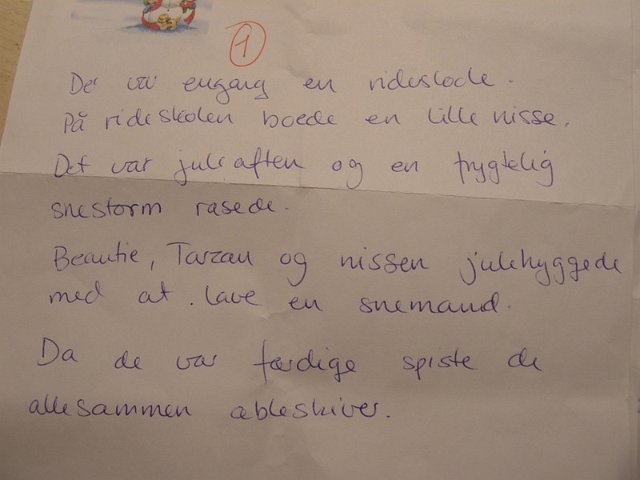 1
De var engang en rideskole.
På rideskolen boede en lille nisse.
Det var juleaften og en frygtelig
snestorm rasede.
Beautie, Tarzan og nissen julehyggede
med at lave en snemand.
Da de var færdige spiste de
allesammen æbleskiver.